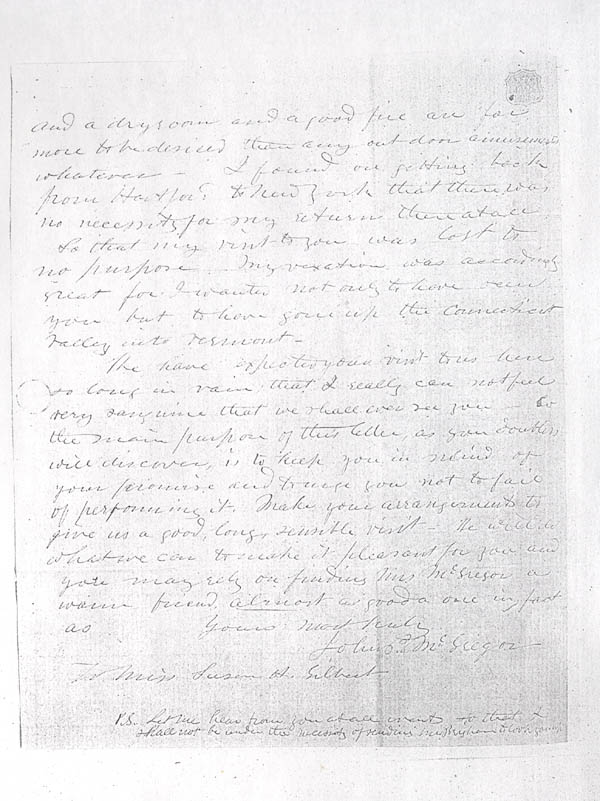 and a dry room and a good fire are far
more to be desired than any out door amusements
whatever – I found on getting back
from Hartford to New York that there was
no necessity for my return there at all
So that my visit to you was lost to
no purpose. My vexation was accordingly
great for I wanted not only to have seen
you but to have gone up the Connecticut
valley into Vermont –
We have expected your visit to us here
so long in vain that I really can not feel
very sanguine that we shall ever see you. So
the main purpose of this letter, as you doubtless
will discover, is to keep you in mind of
your promise and to urge you not to fail
of performing it. Make your arrangements to
give us a good, long, sensible visit – We will do
what we can to make it pleasant for you and
you may rely on finding Mrs McGregor a
warm friend almost as good a one in fact
as Yours most truly
John P. McGregor
To Miss Susan H. Gilbert
P.S. Let me hear from you at all events so that I
shall not be under the necessity of sending to look you up